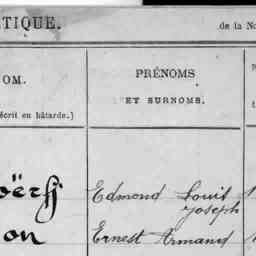 TIQUE.
de la No
OM.
PRÉNOMS
ET SURNOMS.
écrit en bâtarde.)
oërs
Edmond Louis
Joseph
on
Ernest Armand